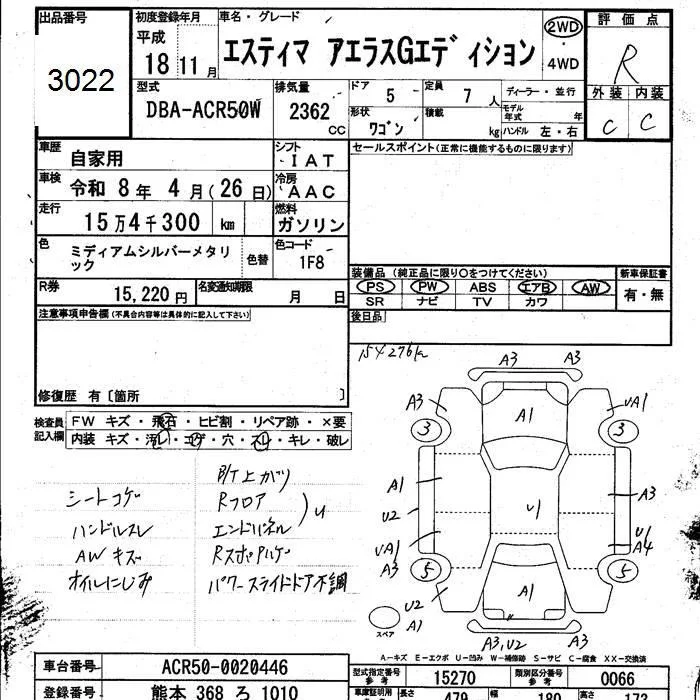 出品番号 初度登録年月 車名・グレード 評価点
3022 平成 18 11 月 エスティマ アエラスGエディション 2WD ・ 4WD R
型式 排気量 ドア 5 定員 7 人 ディーラー・並行 外装 内装
DBA-ACR50W 2362 CC 形状 ワゴン 積載 kg モデル年式 年 C C
ハンドル 左・右
車歴 自家用 シフト IAT セールスポイント(正常に機能するものに限ります)
車検 令和 8 年 4 月(26 日) 冷房 AAC
走行 15万4千300 km 燃料 ガソリン
色 ミディアムシルバーメタリック 色替 色コード 1F8
装備品(純正品に限り○をつけてください) 新車保証書
R券 15,220 円 名変通知期限 月 日 PS PW ABS エアB AW 有・無
SR ナビ TV カワ
注意事項申告欄(不具合内容等は具体的に記入して下さい) 後日品
154276km
修復歴 有〔箇所 〕
検査員記入欄 FW キズ・飛石・ヒビ割・リペア跡・×要
内装 キズ・汚レ・コゲ・穴・スレ・キレ・破レ
シートコゲ
ハンドルスレ
AWキズ
オイルにじみ
B/T上がり
Rフロア
エンドパネル
U
Rスポハゲ
パワースライドドア不調
A3 A3
A3 A1 UA1
3 3
A1 A3
U2 U1
UA1 U1 A4
A3 5 A1 5
U2
スペア A1
A3,U2 A3
A-キズ E-エクボ U-凹み W-補修跡 S-サビ C-腐食 XX-交換済
車台番号 ACR50-0020446 型式指定番号 参考 15270 類別区分番号 参考 0066
登録番号 熊本 368 ろ 1010 長さ 479 幅 180 高さ 173